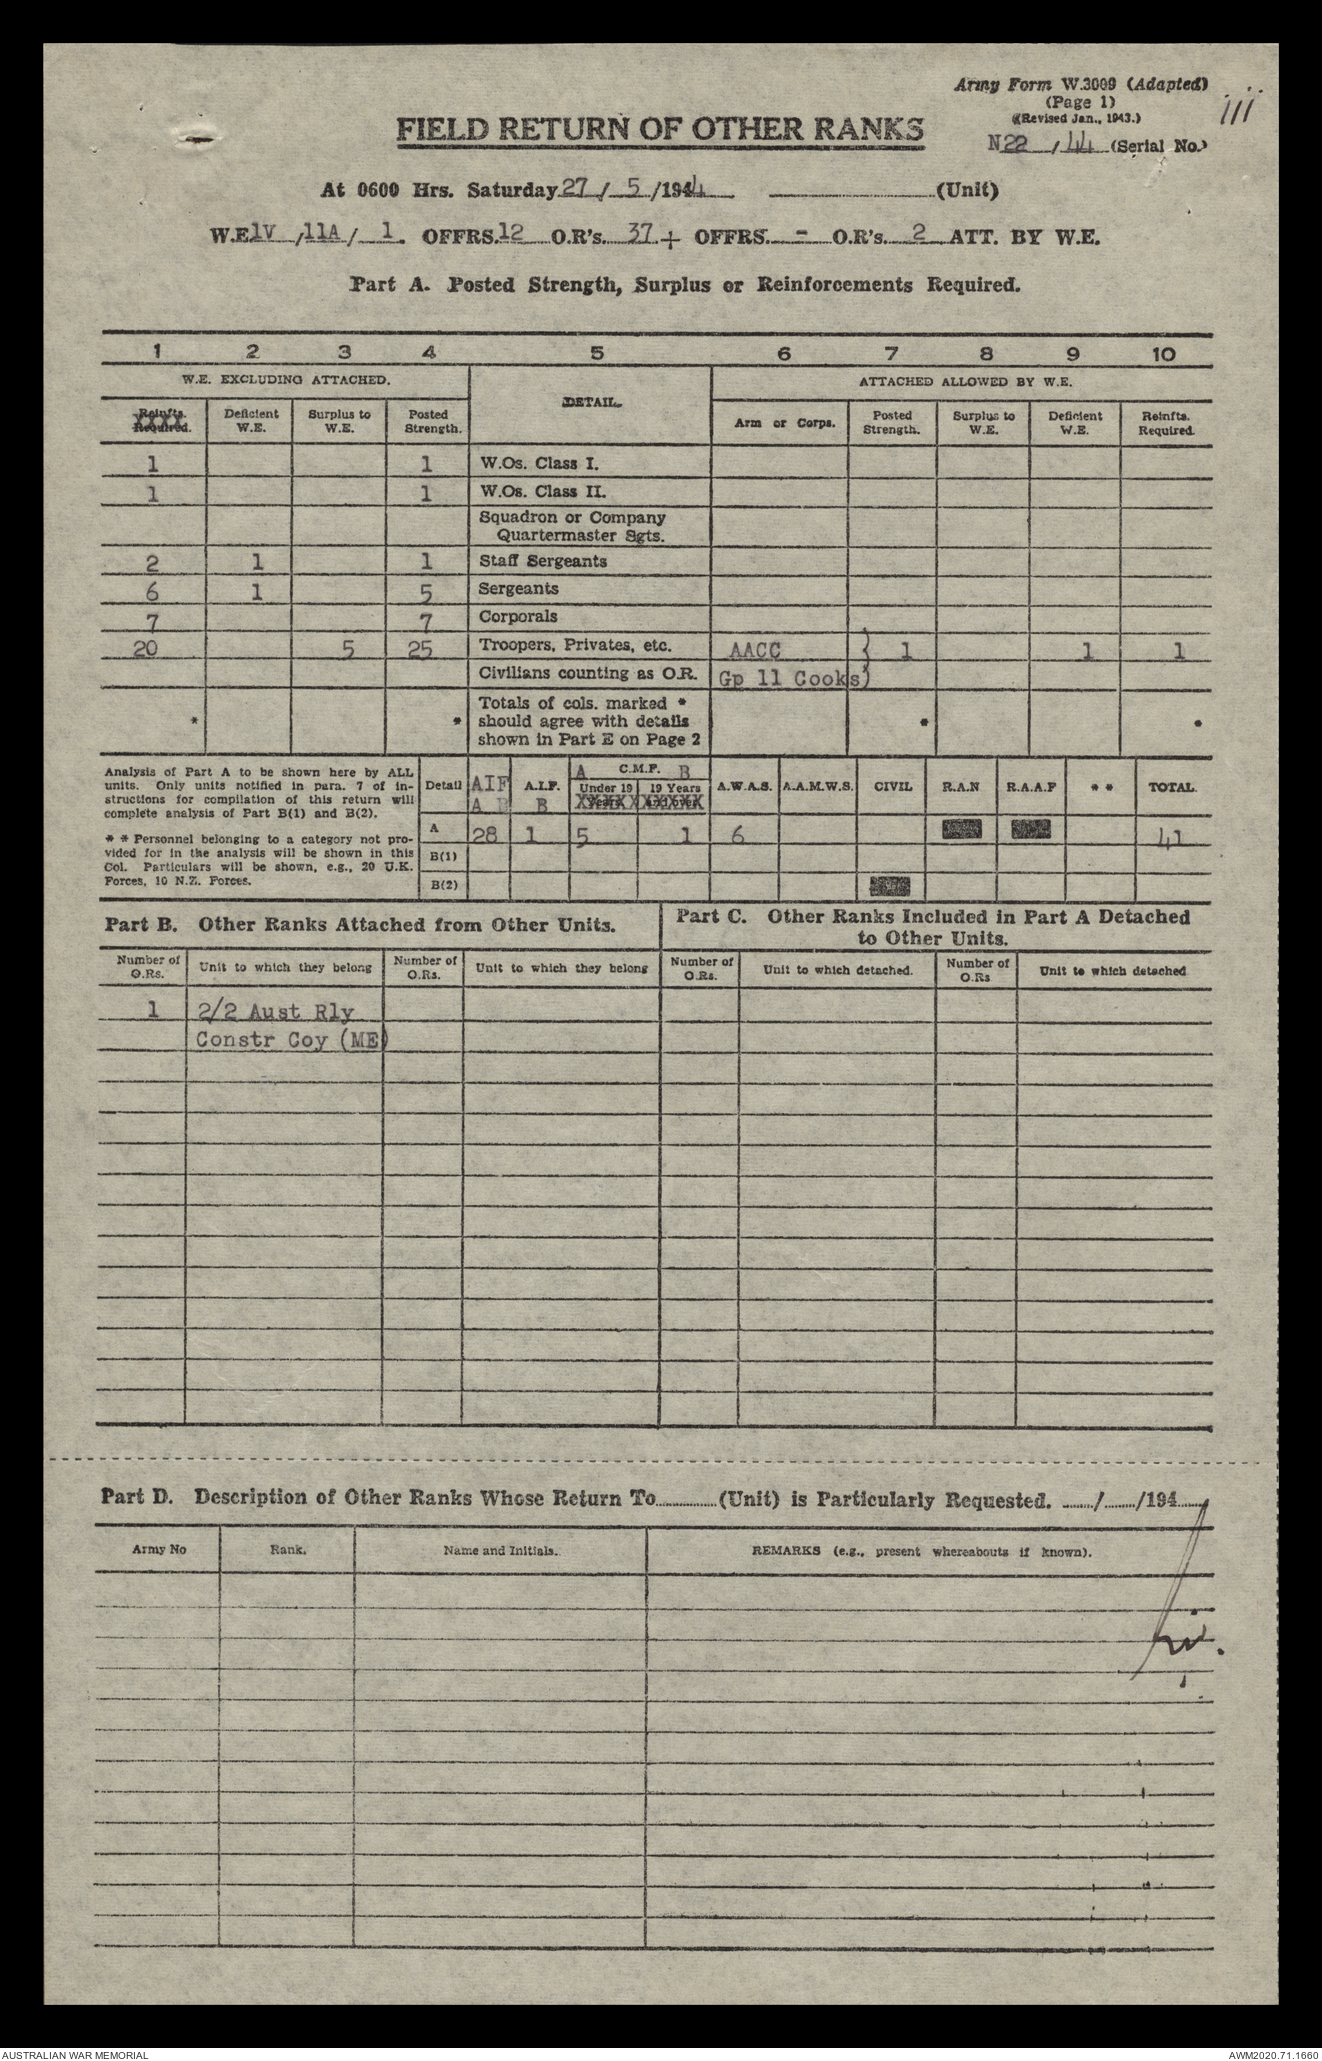 Army Form W.3009 (Adapted)
(Page 1)
(Revised Jan., 1943.)
iii
FIELD RETURN OF OTHER RANKS
N22 / 44 (Serial No.)
At 0600 Hrs. Saturday 27 / 5 /1944 (Unit)
W.E. 1V /11A / 1. OFFRS. 12 O.R's. 37 + OFFRS. - O.R's. 2 ATT. BY W.E.
Part A. Posted Strength, Surplus or Reinforcements Required.
1 2 3 4 5 6 7 8 9 10
W.E. EXCLUDING ATTACHED. DETAIL. ATTACHED ALLOWED BY W.E.
Reinfts. Required. Deficient W.E. Surplus to W.E. Posted Strength. Arm or Corps. Posted Strength. Surplus to W.E. Deficient W.E. Reinfts. Required.
1 1 W.Os. Class I.
1 1 W.Os. Class II.
Squadron or Company
Quartermaster Sgts.
2 1 1 Staff Sergeants
6 1 5 Sergeants
7 7 Corporals
20 5 25 Troopers, Privates, etc. AACC } 1 1 1
Civilians counting as O.R. Gp 11 Cooks)
Totals of cols. marked *
* * should agree with details * *
shown in Part E on Page 2
Analysis of Part A to be shown here by ALL
units. Only units notified in para. 7 of in-
structions for compilation of this return will
complete analysis of Part B(1) and B(2).
* * Personnel belonging to a category not pro-
vided for in the analysis will be shown in this
Col. Particulars will be shown, e.g., 20 U.K.
Forces, 10 N.Z. Forces.
Detail AIF A B A.I.F. B A C.M.F. B Under 19 Years 19 Years and over A.W.A.S. A.A.M.W.S. CIVIL R.A.N R.A.A.F * * TOTAL.
A 28 1 5 1 6 41
B(1)
B(2)
Part B. Other Ranks Attached from Other Units.
Part C. Other Ranks Included in Part A Detached
to Other Units.
Number of O.Rs. Unit to which they belong Number of O.Rs. Unit to which they belong Number of O.Rs. Unit to which detached. Number of O.Rs Unit to which detached
1 2/2 Aust Rly
Constr Coy (ME)
Part D. Description of Other Ranks Whose Return To (Unit) is Particularly Requested. / /194
Army No Rank. Name and Initials. REMARKS (e.g., present whereabouts if known).
AUSTRALIAN WAR MEMORIAL
AWM2020.71.1660